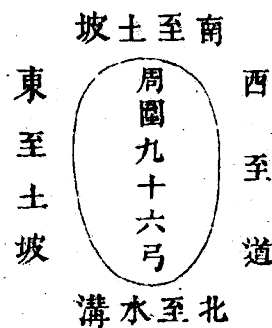 南至土坡
西至道
周圍九十六弓
東至土坡
北至水溝